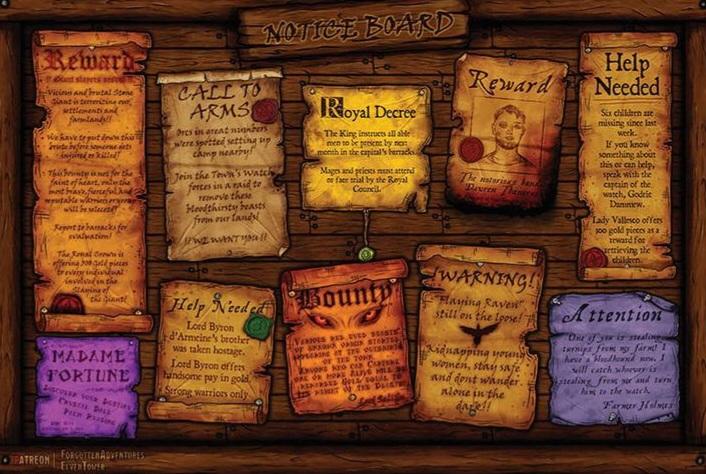 NOTICE BOARD
Reward
Vicious and brutal Stone
Giant is terrorizing our
settlements and
farmlands!!
We have to put down this
brute before someone gets
injured or killed!
This bounty is not for the
faint of heart, only the
most brave, fierceful and
reputable warriors
will be selected!
Report to barracks for
evaluation!
The Royal Crown is
offering 500 Gold pieces
to every individual
involved in the
Slaying of
the Giant!
CALL TO
ARMS
Orcs in great numbers
were spotted setting up
camp nearby!
Join the Town's Watch
forces in a raid to
remove these
bloodthirsty beasts
from our lands!
!!WE WANT YOU!!
Royal Decree
The King instructs all able
men to be present by next
month in the capital's barracks.
Mages and priests must attend
or face trial by the Royal
Council.
Reward
The notorious
Help
Needed
Six children are
missing since last
week.
If you know
something about
this or can help,
speak with the
captain of the
watch, Godric
Lady Vallesco offers
100 gold pieces as a
reward for
retrieving the
children.
MADAME
FORTUNE
DISCOVER YOUR DESTINY
CRYSTAL BALL
PALM READING
Help Needed
Lord Byron
d'Armeine's brother
was taken hostage.
Lord Byron offers
handsome pay in gold.
Strong warriors only.
Bounty
OF THE TOWN.
!WARNING!
"Flaying Raven"
still on the loose!
Kidnapping young
women, stay safe
and dont wander
alone in the
dark!!
Attention
One of you is stealing
turnips from my farm! I
have a bloodhound now. I
will catch whoever is
stealing from me and turn
him to the watch.
Farmer Holmes
PATREON | FORGOTTENADVENTURES
ELVENTOWER